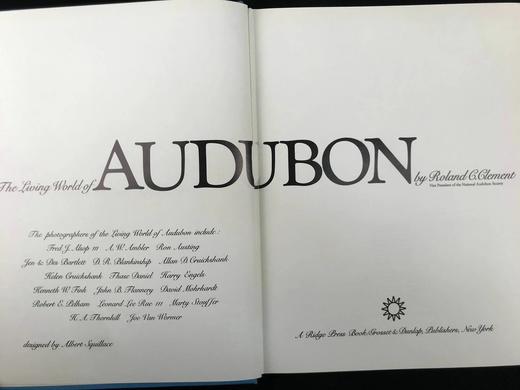 The Living World of AUDUBON by Roland C. Clement
Vice President of the National Audubon Society
The photographers of the Living World of Audubon include:
Fred J. Alsop III A.W. Ambler Ron Austing
Jen & Des Bartlett D. R. Blankinship Allan D. Cruickshank
Helen Cruickshank Thase Daniel Harry Engels
Kenneth W. Fink John B. Flannery David Mohrhardt
Robert E. Pelham Leonard Lee Rue III Marty Stouffer
H. A. Thornhill Joe Van Wormer
designed by Albert Squillace
A Ridge Press Book/Grosset & Dunlap, Publishers, New York